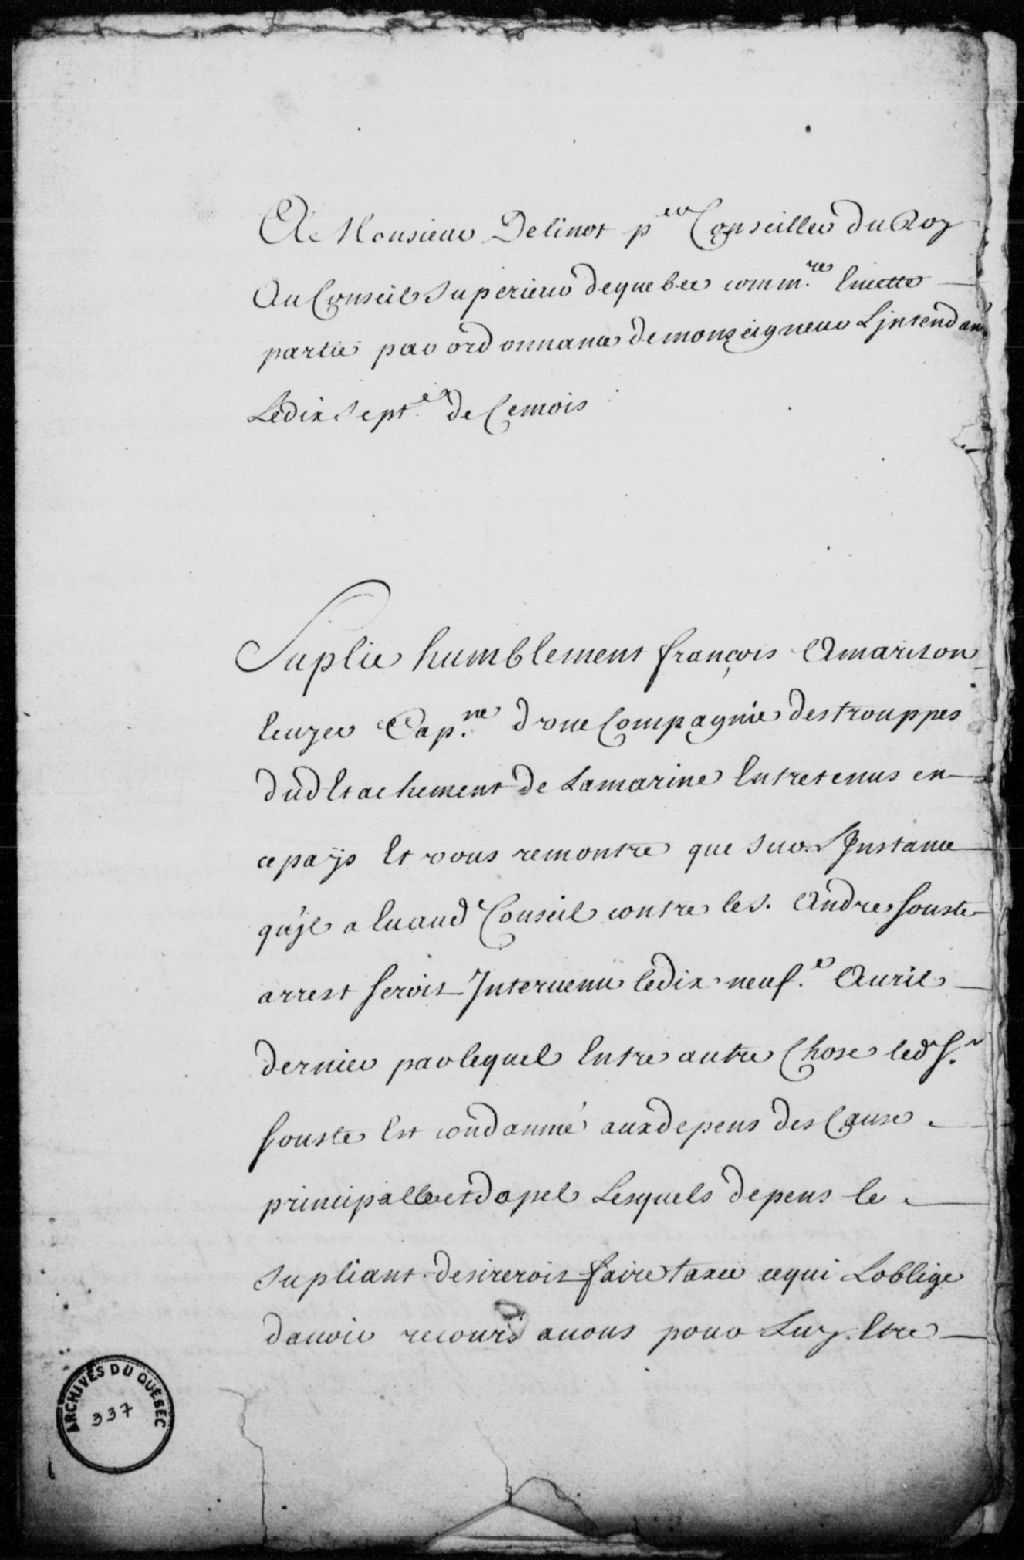 A Monsieur Delinot p.er Conseiller du Roy
Au Conseil Superieur de quebec comm.re Encette
partie par ordonnance de monseigneur L'jntendant
Ledix Sept.e de Cemois
Suplie humblement françois Amariton
Ecuyer Cap.ne d'vne Compagnie des trouppes
dud Etachement de Lamarine Entretenus en
ce pays Et vous remontre que sur Jnstance
qu'jl a Euaud Conseil contre le s. Andre souste
arrest seroit Interuenu ledix neuf.e Auril
dernier par lequel Entre autre Chose led s.r
souste Est condamné aux depens des Cause
principalle et dapel Lesquels depens le
supliant desireroit faire taxer ce qui Loblige
dauoir recours a uous pour Luy Etre
ARCHIVES DU QUÉBEC
337